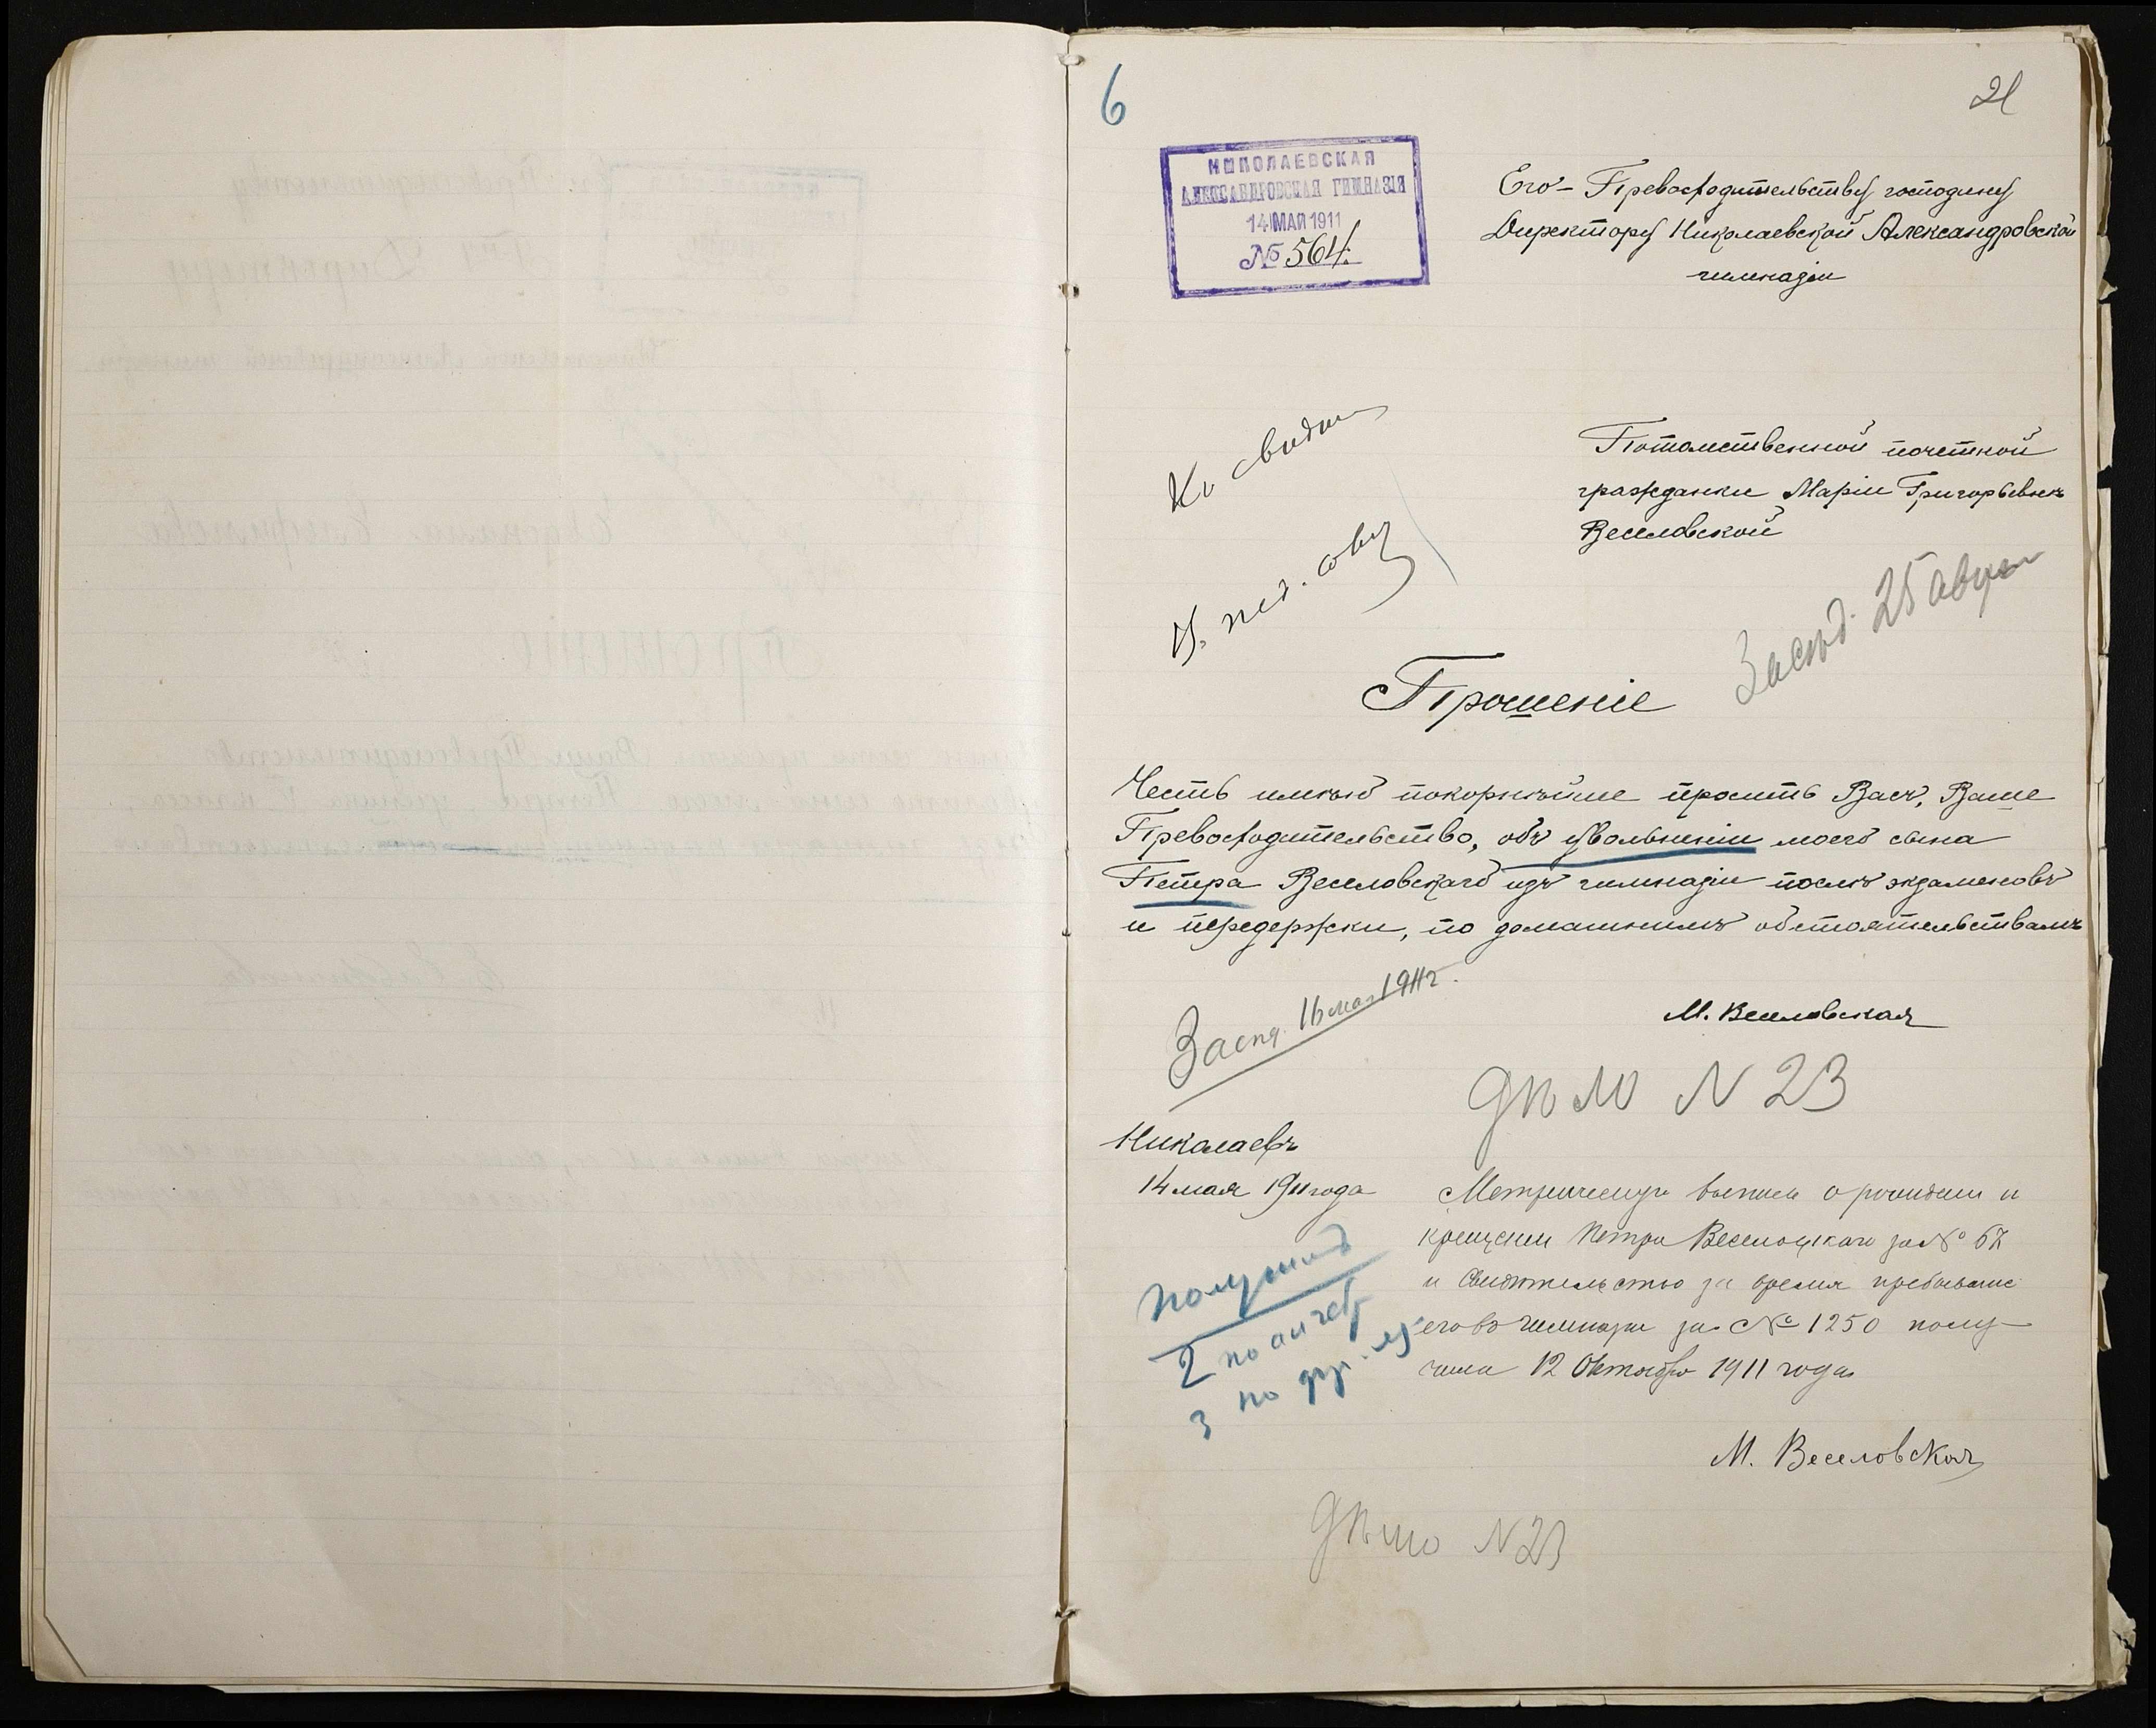 6
21
НИКОЛАЕВСКАЯ
АЛЕКСАНДРОВСКАЯ ГИМНАЗІЯ
14 МАЯ 1911
№ 564.
Его- Превосходительству господину
Директору Николаевской Александровской
гимназіи
Потомственной почетной
гражданки Маріи Григорьевны
Веселовской
Къ свѣдѣн
В. пед. сову
Засѣд. 25 авгус
Прошеніе
Честь имѣю покорнѣйше просить Васъ, Ваше
Превосходительство, объ увольненіи моего сына
Петра Веселовскаго изъ гимназіи послѣ экзаменовъ
и передержки, по домашнимъ обстоятельствамъ
М. Веселовская
Засѣд. 16 мая 1911 г.
дѣло N 23
Николаевъ
14 мая 1911 года
Метрическую выпись о рождении и
крещении Петра Веселовскаго за №
и свидѣтельство за время пребывание
его въ гимназіи за № 1250 полу-
чила 12 Октября 1911 года
М. Веселовская
2 по
3 по
дѣло N 23